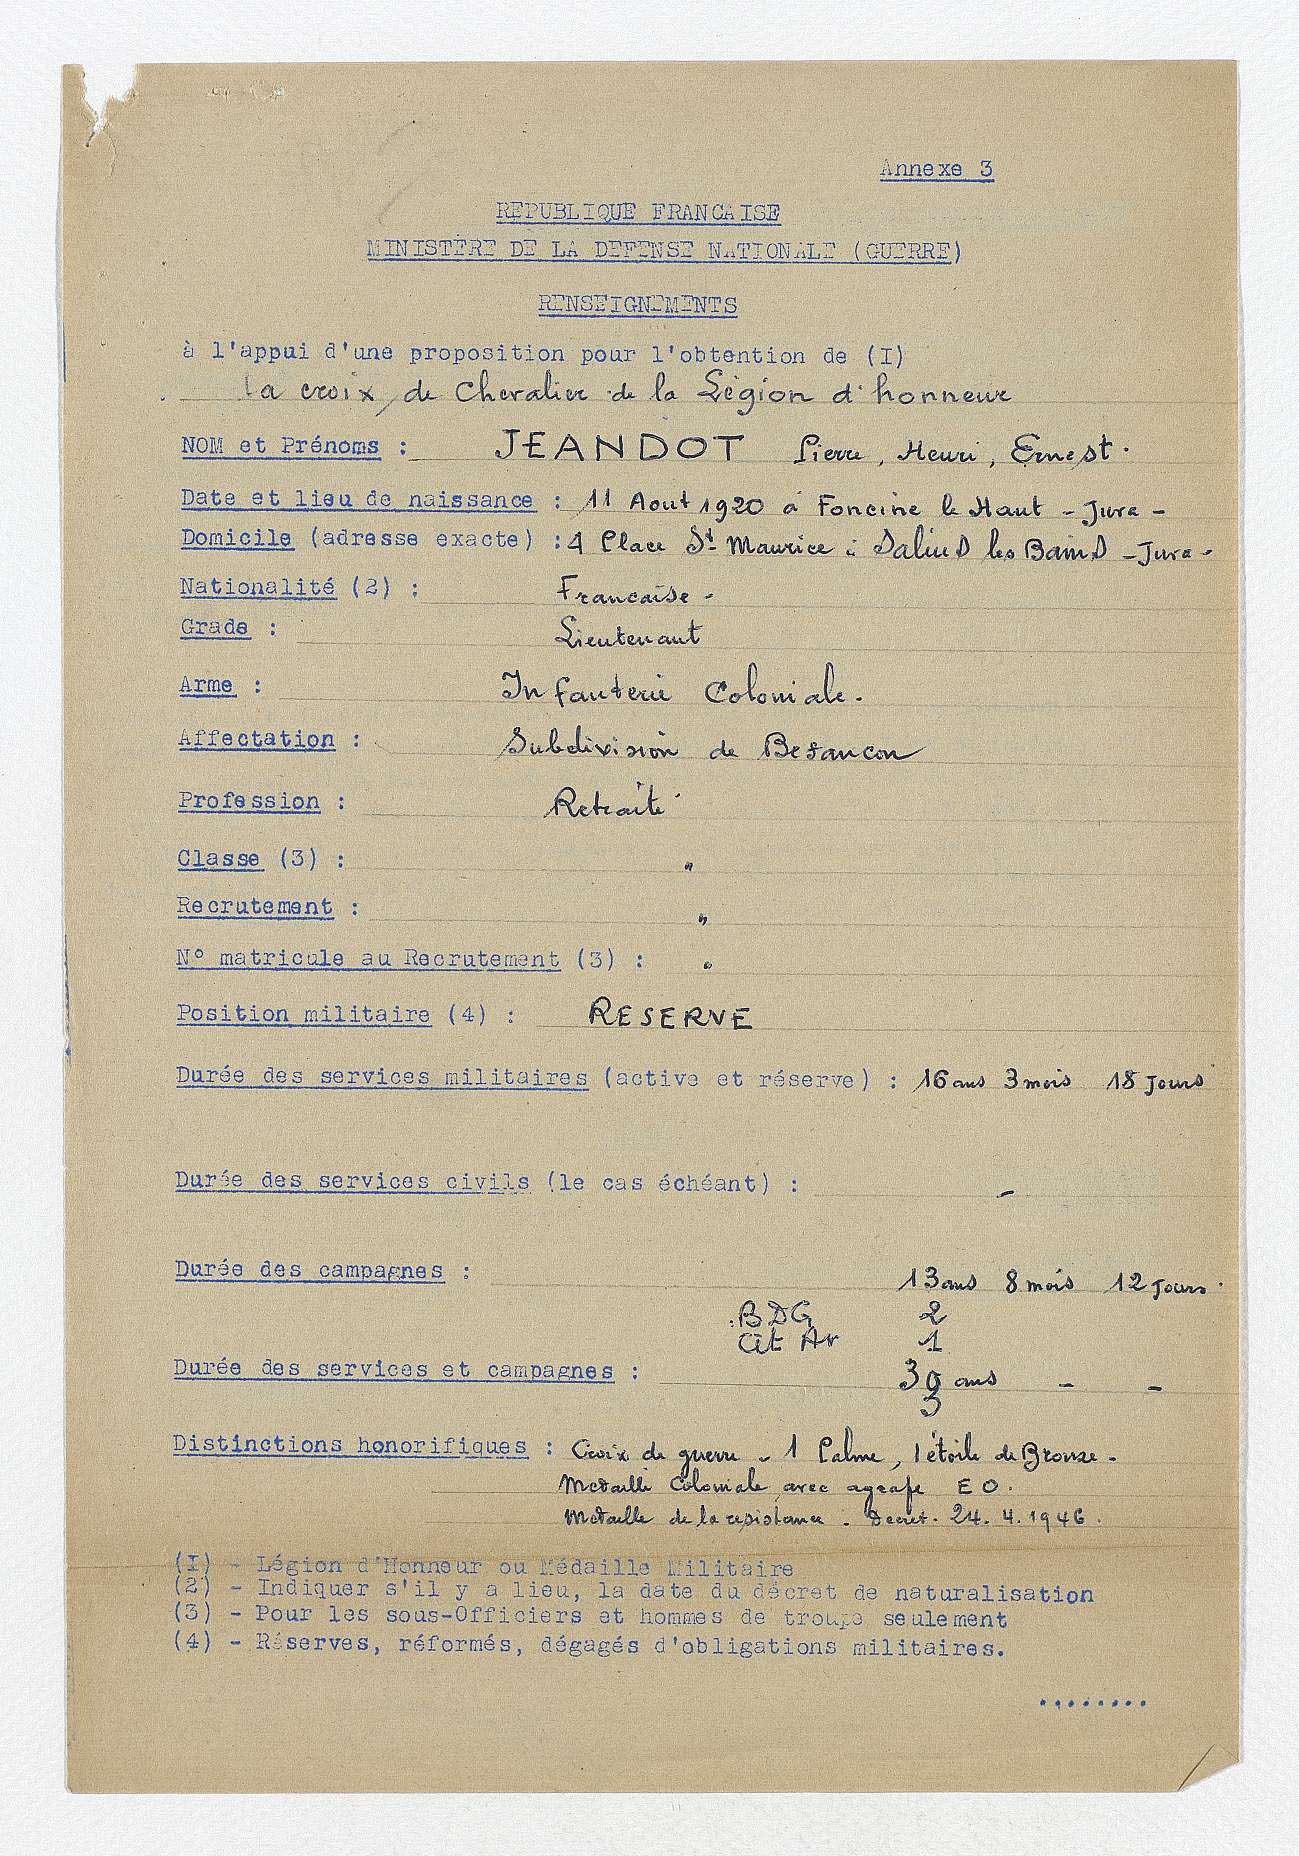 Annexe 3
REPUBLIQUE FRANCAISE
MINISTÈRE DE LA DEFENSE NATIONALE (GUERRE)
RENSEIGNEMENTS
à l'appui d'une proposition pour l'obtention de (I)
la croix de Chevalier de la Légion d'honneur
NOM et Prénoms : JEANDOT Pierre, Henri, Ernest.
Date et lieu de naissance : 11 Aout 1920 à Foncine le Haut - Jura -
Domicile (adresse exacte) : 4 Place St Maurice à Salins les Bains - Jura -
Nationalité (2) : Francaise -
Grade : Lieutenant
Arme : Infanterie Coloniale.
Affectation : Subdivision de Besancon
Profession : Retraité
Classe (3) : "
Recrutement : "
N° matricule au Recrutement (3) : "
Position militaire (4) : RESERVE
Durée des services militaires (active et réserve) : 16 ans 3 mois 18 Jours
Durée des services civils (le cas échéant) : -
Durée des campagnes : 13 ans 8 mois 12 Jours.
BDG 2
Cit Ar 1
Durée des services et campagnes : 30 ans - -
3
Distinctions honorifiques : Croix de guerre - 1 Palme, 1 étoile de Bronze -
Medaille Coloniale avec agrafe E O.
Medaille de la resistance - Decret - 24. 4. 1946.
(I) - Légion d'Honneur ou Médaille Militaire
(2) - Indiquer s'il y a lieu, la date du décret de naturalisation
(3) - Pour les sous-Officiers et hommes de troupe seulement
(4) - Réserves, réformés, dégagés d'obligations militaires.
........